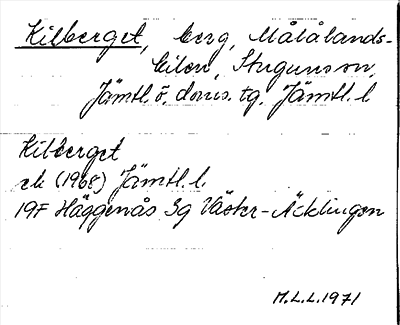 Kilberget, berg, Målålands-
bilen, Stuguns sn,
Jämtl. ö. doms. tg, Jämtl. l
Kilberget
ek (1968) Jämtl. l.
19F Häggenås 3g Väster-Äcklingen
M.L.L. 1971